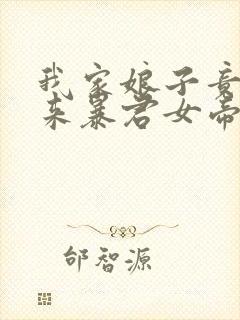 我家娘子竟
来暴君女帝
邰智源